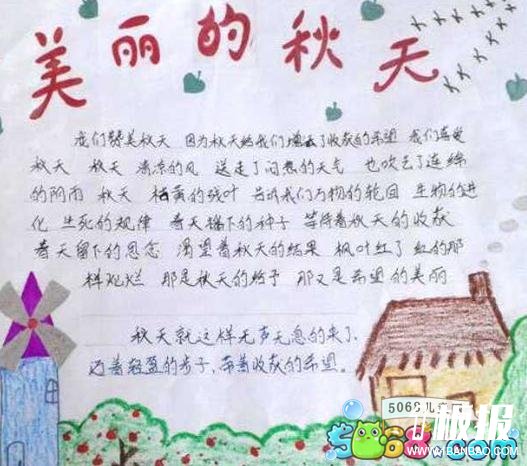 美丽的秋天
我们赞美秋天 因为秋天给我们增添了收获的希望 我们喜爱
秋天 秋天 清凉的风 送走了闷热的天气 也吹之了连绵
的阴雨 秋天 枯黄的残叶 告诉我们万物的轮回 生物的进
化 生死的规律 春天播下的种子 等待着秋天的收获
春天留下的思念 渴望着秋天的结果 枫叶红了 红的那
样灿烂 那是秋天的给予 那又是希望的美丽
秋天就这样无声无息的来了,
迈着轻盈的步子,带着收获的希望。
5068儿童
板报
5068.com
WWW.BANBAO.COM